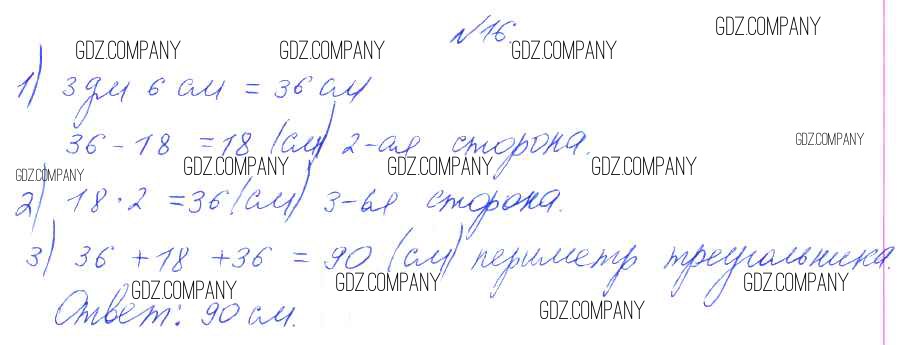 №16.
GDZ.COMPANY GDZ.COMPANY GDZ.COMPANY GDZ.COMPANY
1) 3 дм 6 см = 36 см
36 - 18 = 18 (см) 2-ая сторона.
GDZ.COMPANY
GDZ.COMPANY GDZ.COMPANY GDZ.COMPANY GDZ.COMPANY
2) 18 · 2 = 36 (см) 3-ья сторона.
3) 36 + 18 + 36 = 90 (см) периметр треугольника.
GDZ.COMPANY GDZ.COMPANY GDZ.COMPANY
Ответ: 90 см.
GDZ.COMPANY